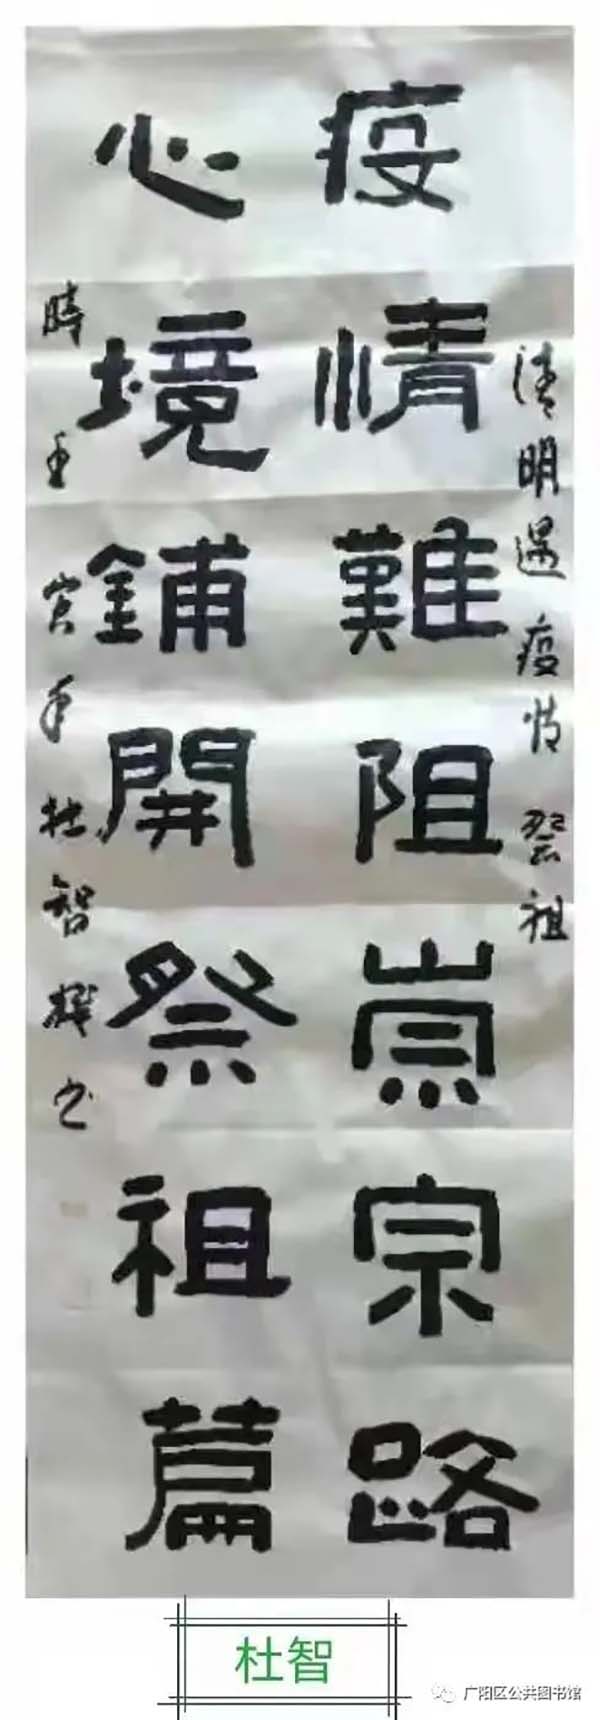 清明遇疫情祭祖
疫情難阻崇宗路
心境鋪開祭祖篇
時壬寅年杜智輝书
杜智
广阳区公共图书馆